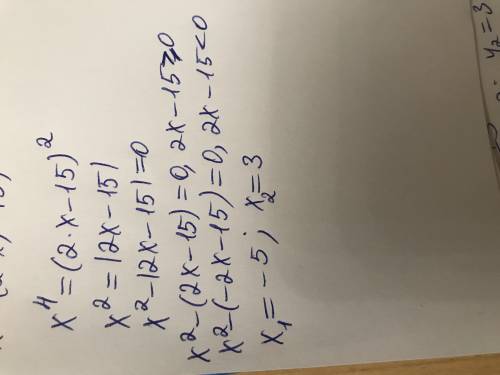 x⁴=(2·x-15)²
x²=|2x-15|
x²-|2x-15|=0
x²-(2x-15)=0, 2x-15⩾0
x²-(-2x-15)=0, 2x-15<0
x₁=-5; x₂=3
y₂=3